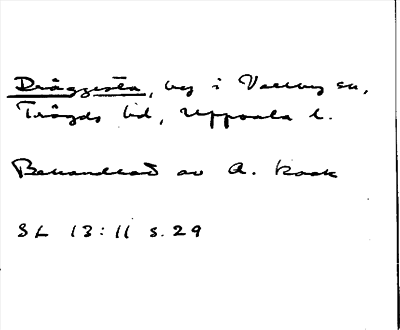 Dräggesta, by i Vallby sn,
Trögds hd, Uppsala l.
Behandlad av A. Kock
SL 13:11 s. 29